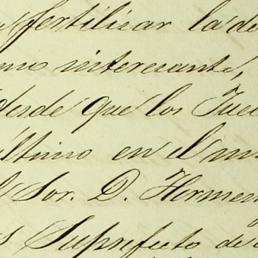 fertilizar la de
mo interesante,
desde que los Juec
último en el mi
Sor. D. Hermen
Suprefecto de